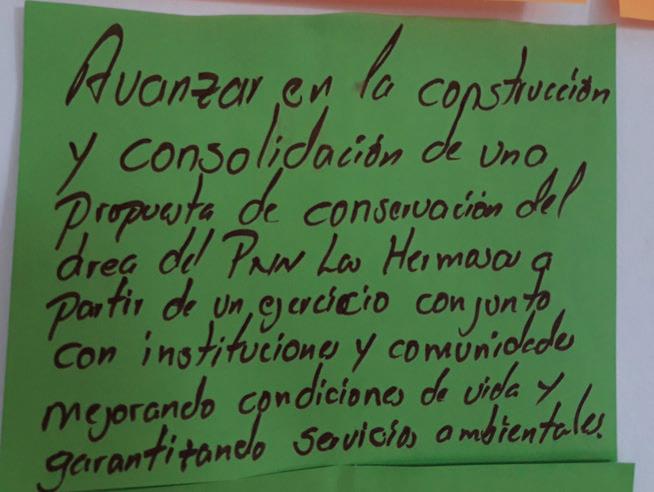 Avanzar en la construcción
y consolidación de una
propuesta de conservación del
área del PNN Las Hermosas a
partir de un ejercicio conjunto
con instituciones y comunidades
mejorando condiciones de vida y
garantizando servicios ambientales.